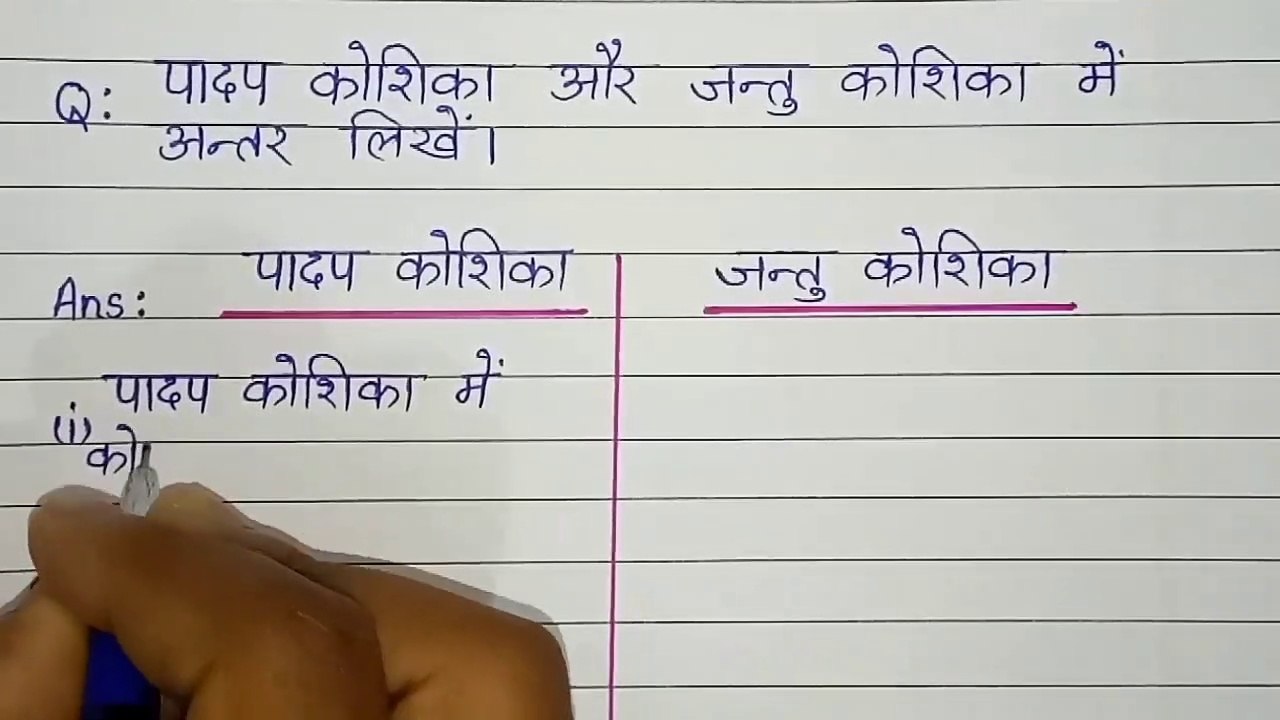 Q: पादप कोशिका और जन्तु कोशिका में
अन्तर लिखें।
Ans: पादप कोशिका जन्तु कोशिका
(i) पादप कोशिका में
को